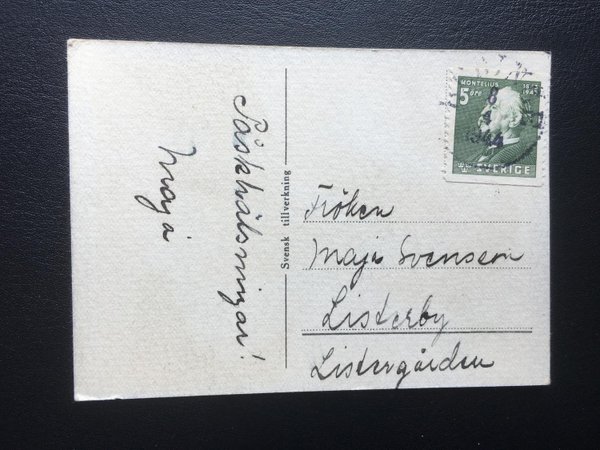 Påskhälsningar!
Maja
Svensk tillverkning
MONTELIUS
5 öre
SVERIGE
8
4
1944
Fröken
Maja Svensson
Listerby
Listergården